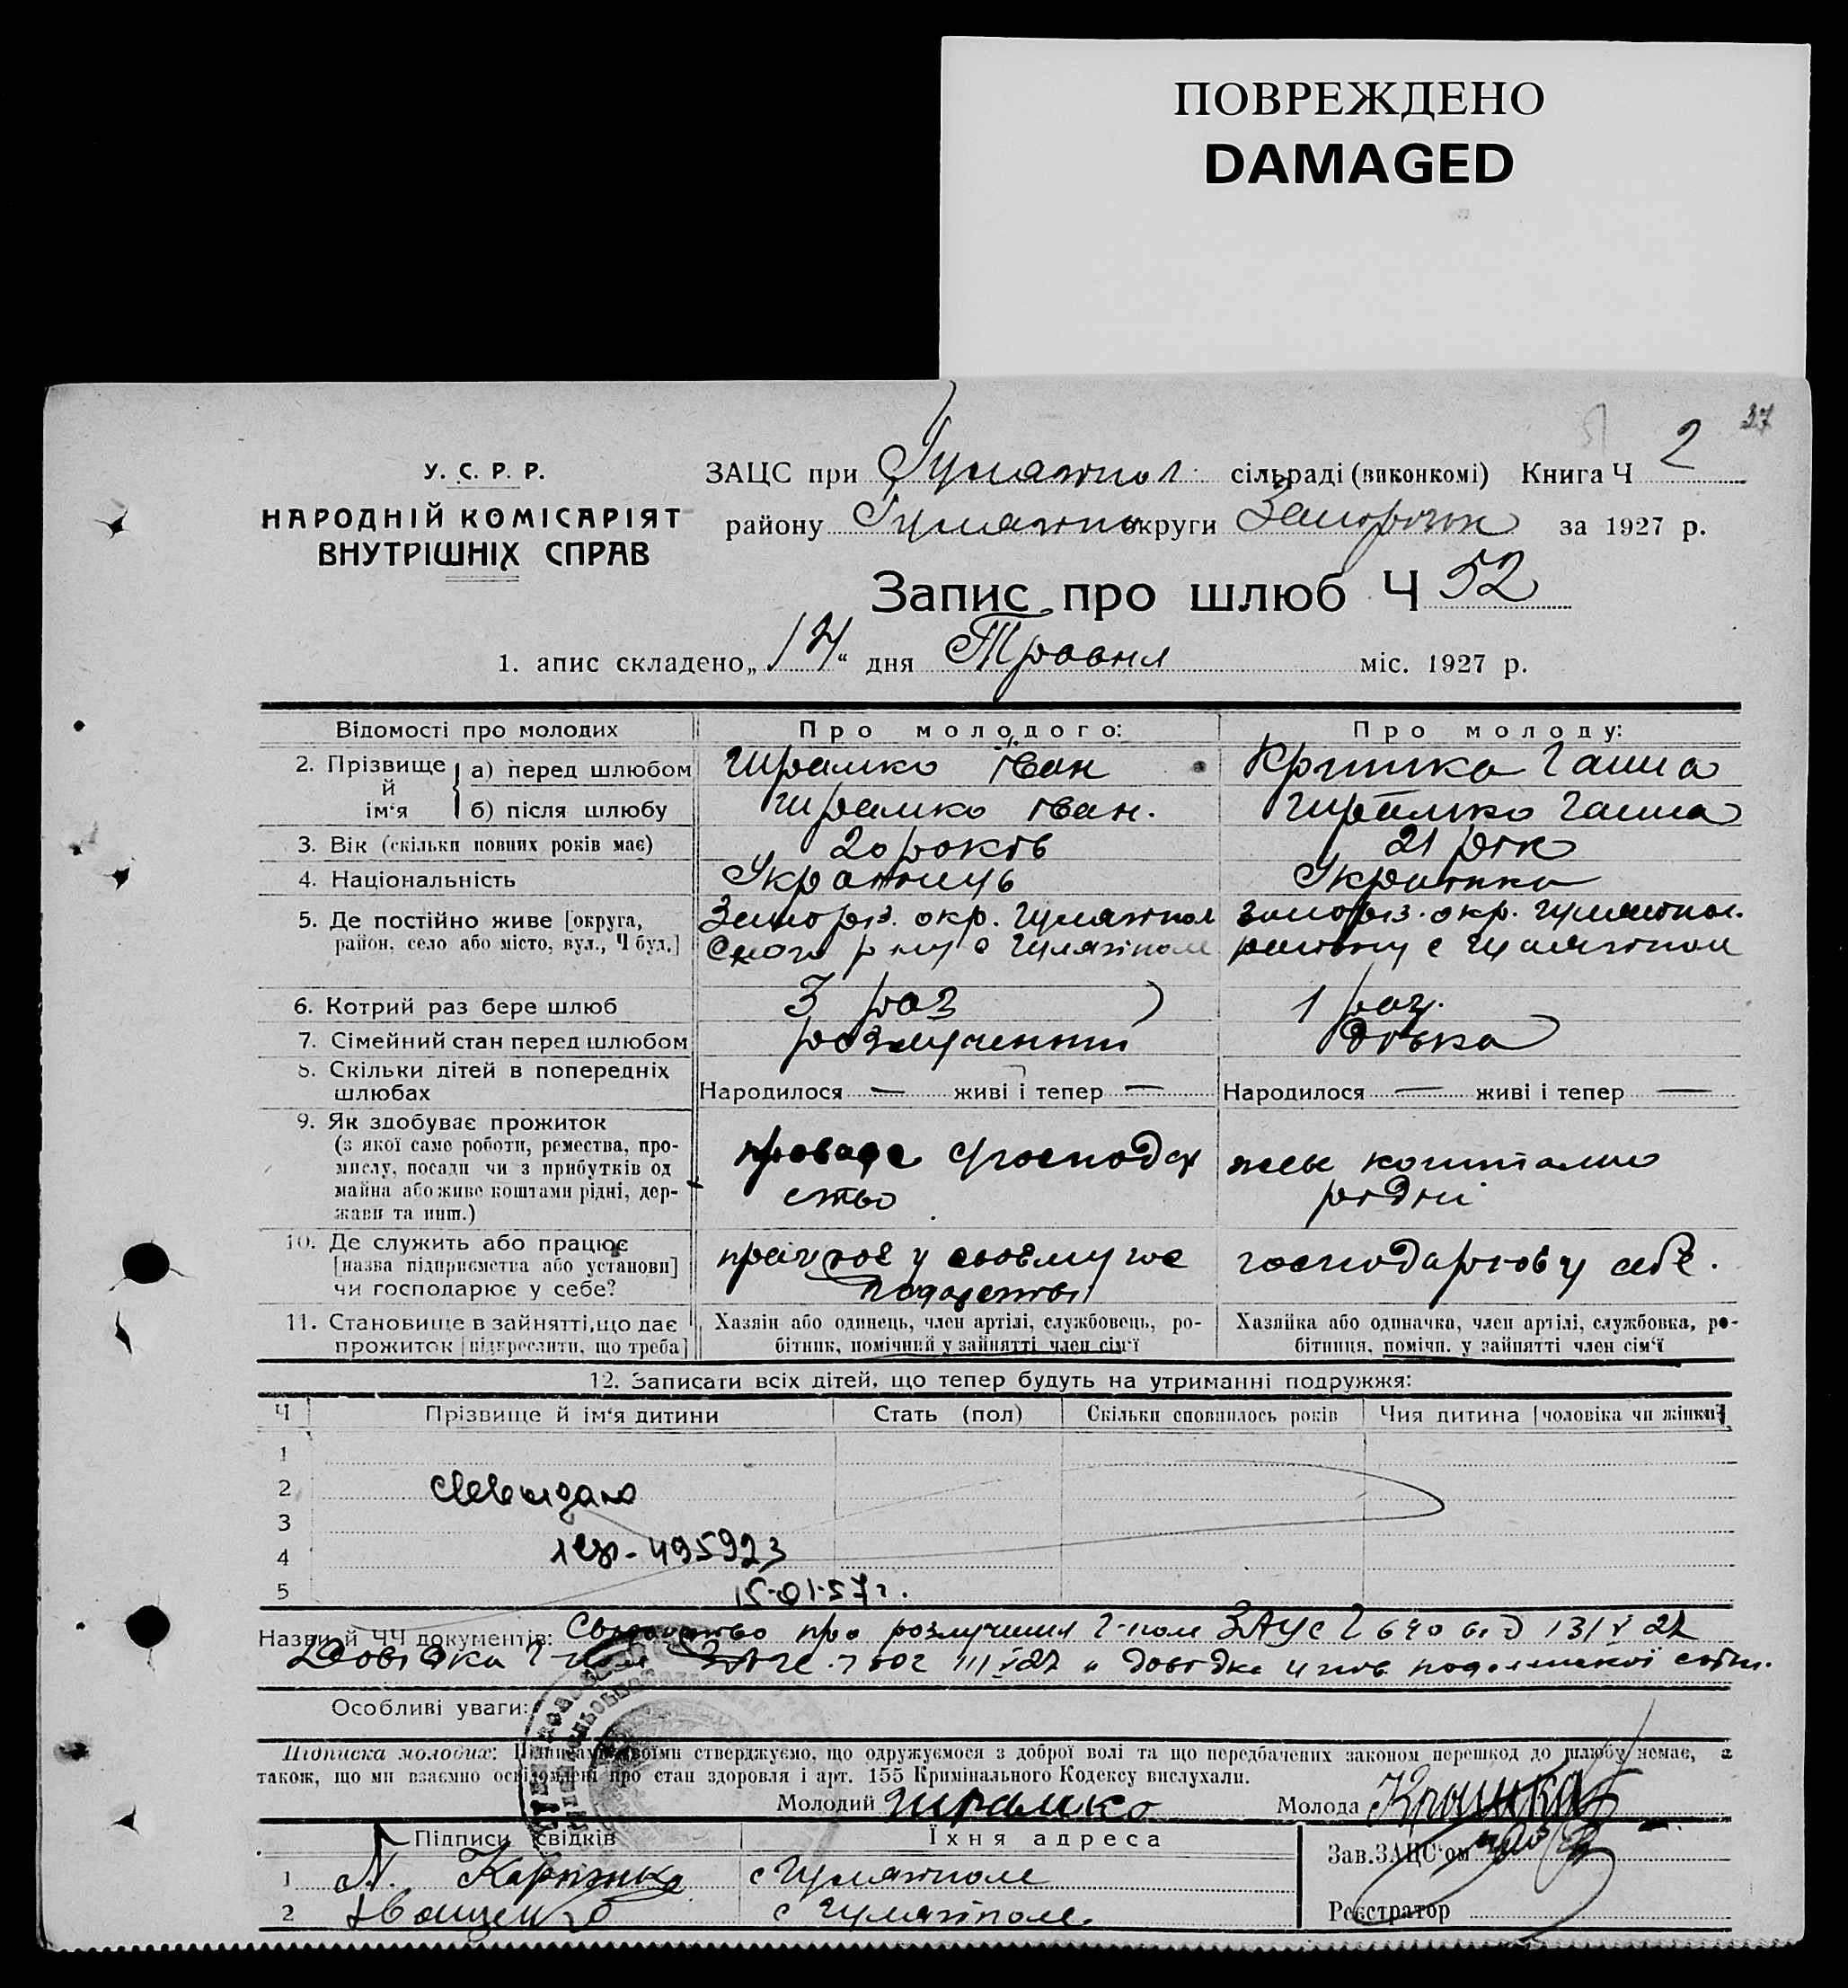 ПОВРЕЖДЕНО
DAMAGED
37
У. С. Р. Р.
НАРОДНІЙ КОМІСАРІЯТ
ВНУТРІШНІХ СПРАВ
ЗАЦС при Гуляйпол. сільраді (виконкомі) Книга Ч 2
району Гуляйпо округи за 1927 р.
Запис про шлюб Ч 52
1. апис складено „ “ дня Травня міс. 1927 р.
Відомості про молодих
Про молодого:
Про молоду:
2. Прізвище й ім‘я
а) перед шлюбом Шрамко Іван Ганна
б) після шлюбу Шрамко Іван. Шрамко Ганна
3. Вік (скільки повних років має) 20 років 21 рік
4. Національність Українець Українка
5. Де постійно живе [округа, район, село або місто, вул., Ч буд.]
Запоріз. окр. Гуляйпол
ского р ну с Гуляйполе
Запоріз. окр. Гуляйпол.
району с Гуляйполе
6. Котрий раз бере шлюб 3 раз 1 раз.
7. Сімейний стан перед шлюбом розлучений дівка
8. Скільки дітей в попередніх шлюбах
Народилося — живі і тепер —
Народилося — живі і тепер —
9. Як здобуває прожиток
(з якої саме роботи, ремества, про-
мислу, посади чи з прибутків од
майна або живе коштами рідні, дер-
жави та инш.)
ство
живе коштами
рідні
10. Де служить або працює
[назва підприємства або установи]
чи господарює у себе?
працює у своєму гос
подарстві
господарює у себе.
11. Становище в зайнятті, що дає
прожиток [підкреслити, що треба]
Хазяїн або одинець, член артілі, службовець, ро-
бітник, помічний у зайнятті член сім‘ї
Хазяйка або одиначка, член артілі, службовка, ро-
бітниця, помічн. у зайнятті член сім‘ї
12. Записати всіх дітей, що тепер будуть на утриманні подружжя:
Ч Прізвище й ім‘я дитини Стать (пол) Скільки сповнилось років Чия дитина [чоловіка чи жінки]
1
2
3
4 495923
5 15-01-57 г.
Назви й ЧЧ документів: про розлучення ЗАЦС 640 від 27
Довідка довідка
Особливі уваги:
Підписка молодих: Підписами своїми стверджуємо, що одружуємося з доброї волі та що передбачених законом перешкод до шлюбу немає, а
також, що ми взаємно освідомлені про стан здоровля і арт. 155 Кримінального Кодексу вислухали.
Молодий Шрамко Молода
Підписи свідків Їхня адреса
Зав. ЗАЦС‘ом
1 с Гуляйполе
2 Іващенко с Гуляйполе.
Реєстратор